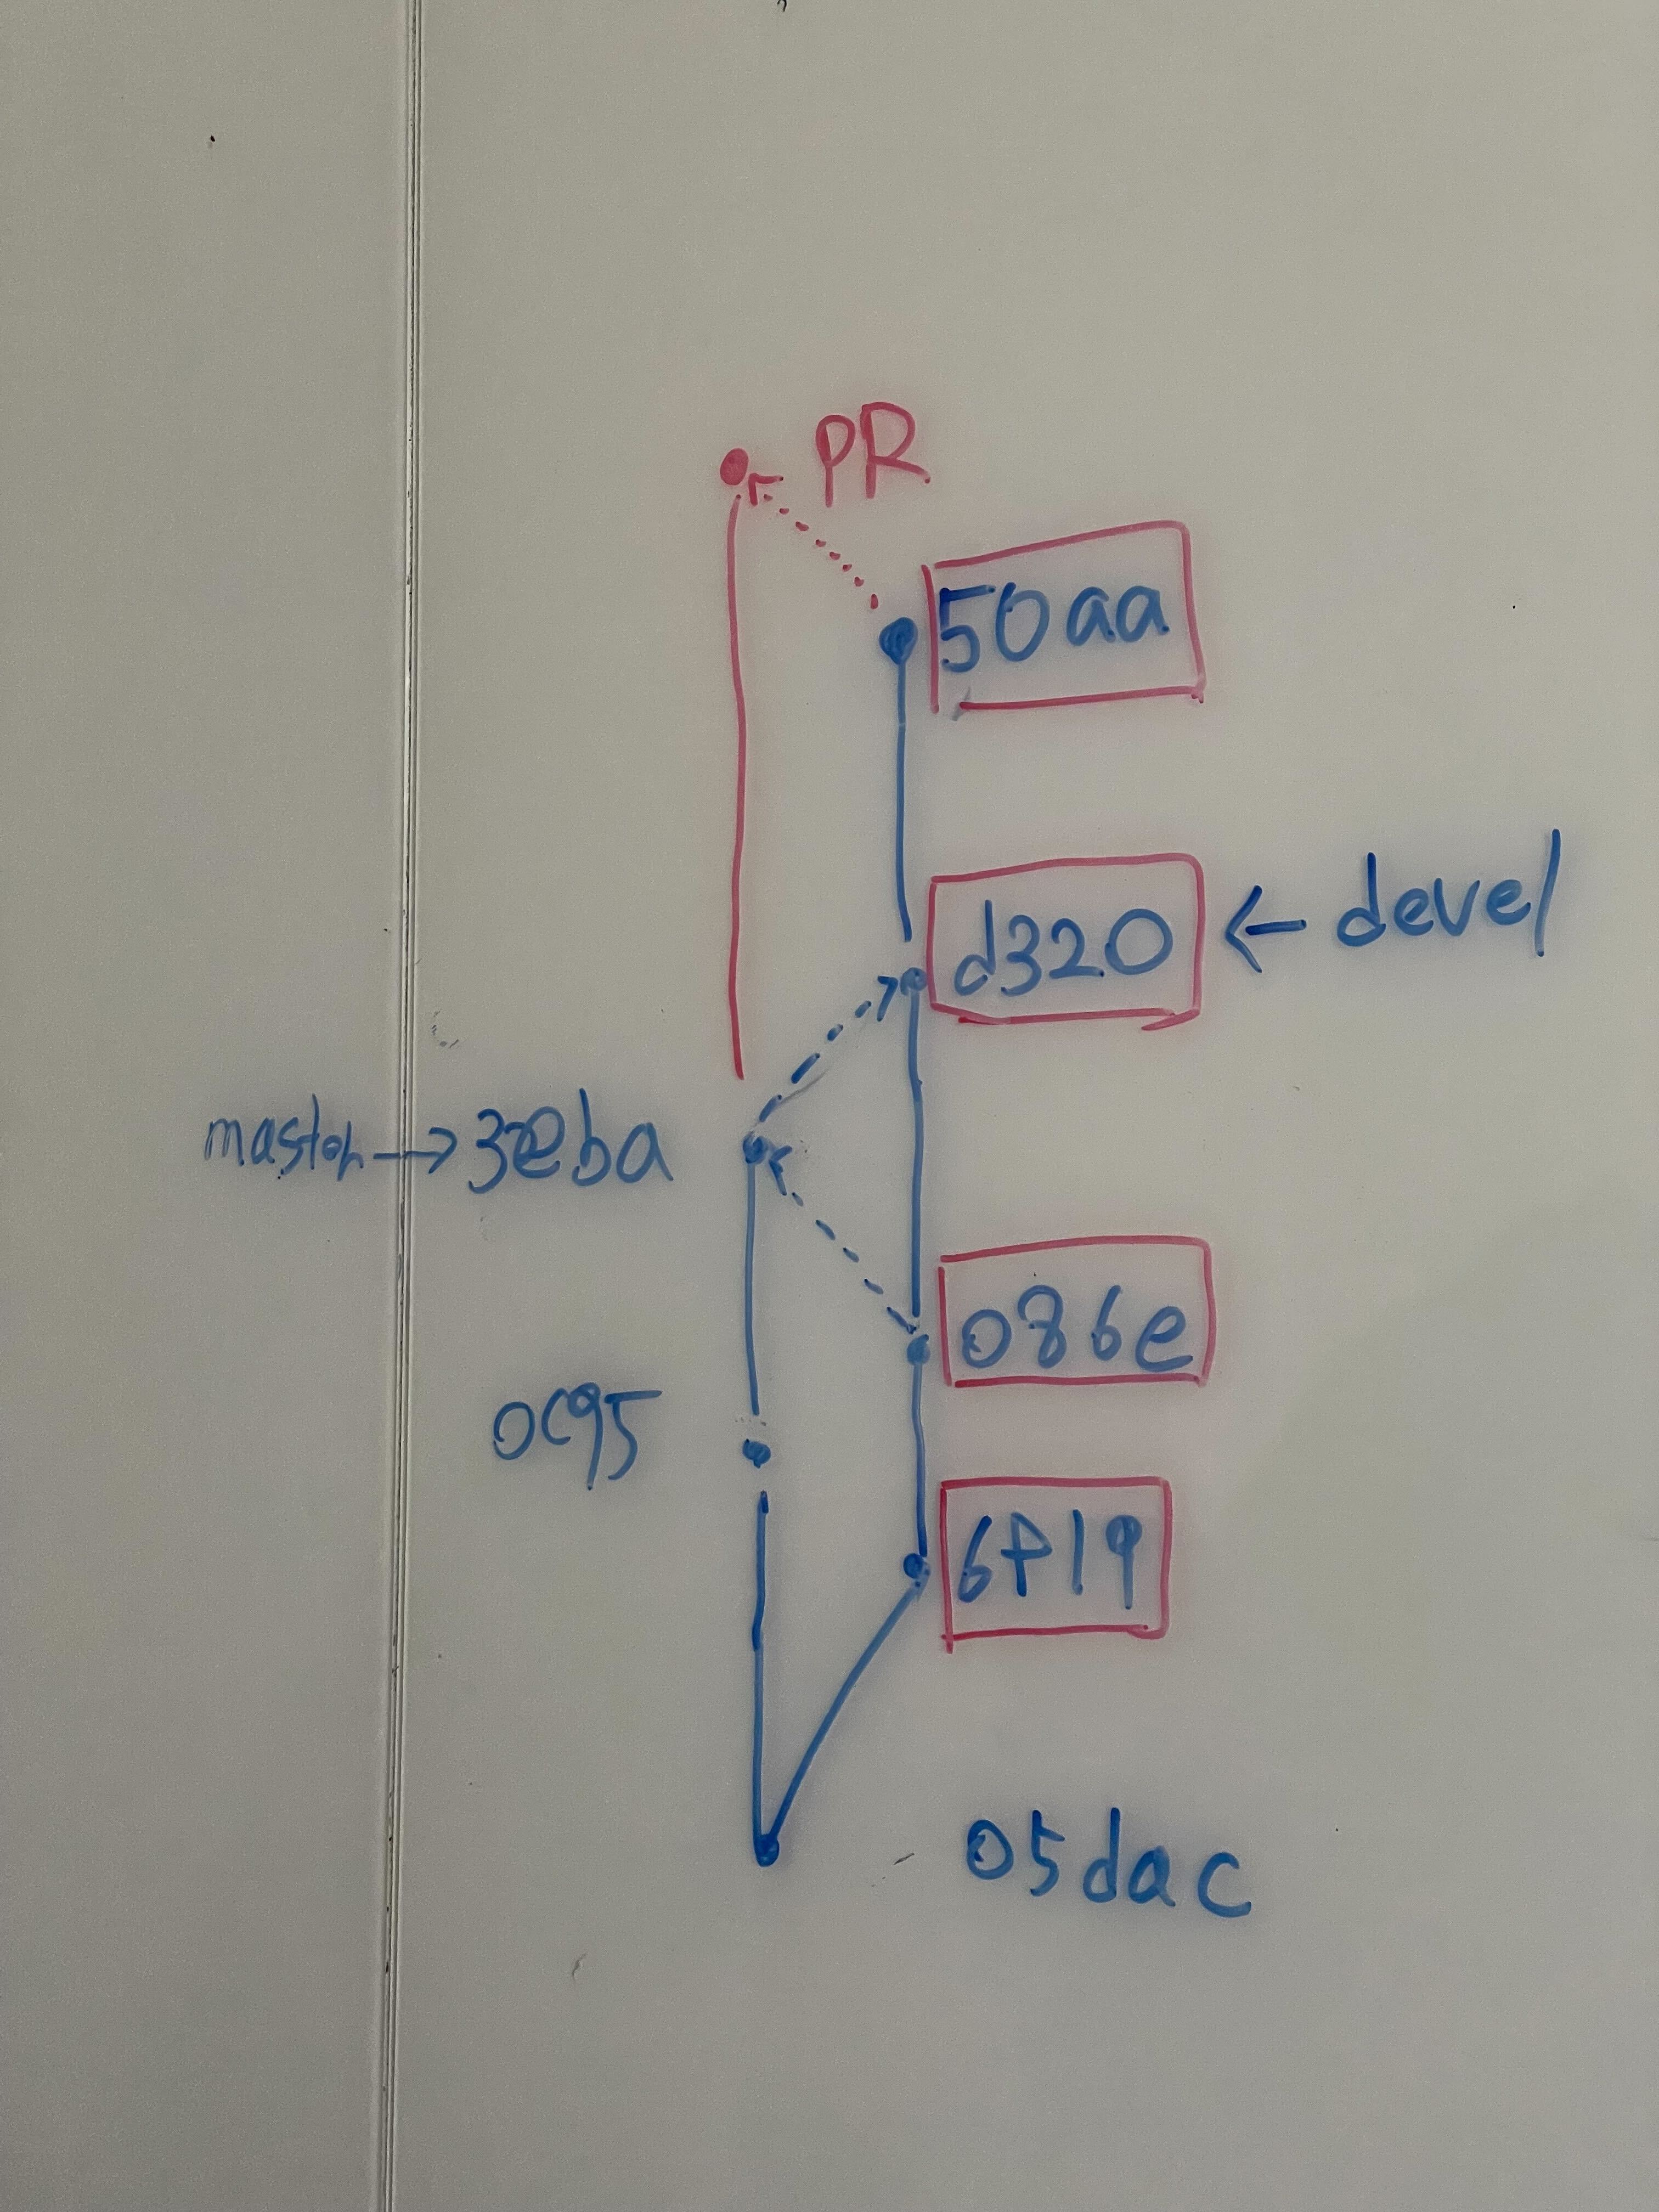 PR
50aa
d320 ← devel
master → 3eba
086e
0c95
6f19
05dac